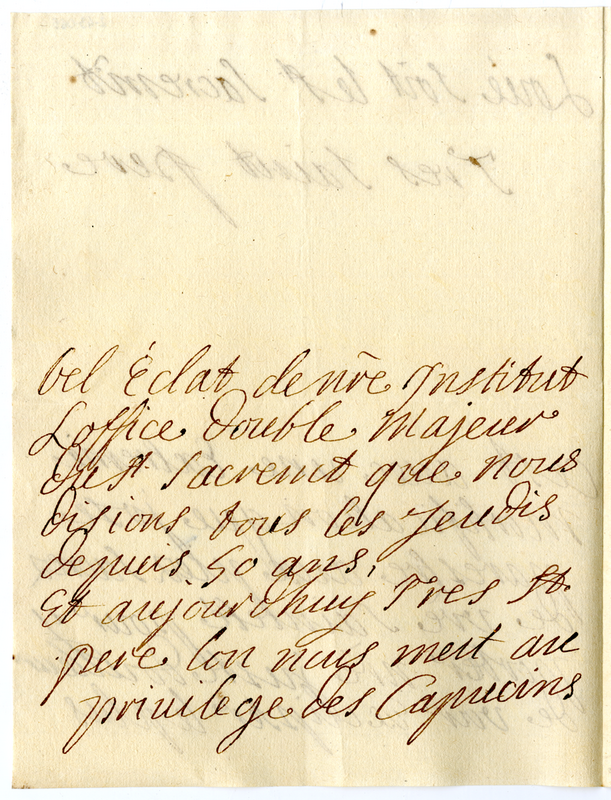 bel Éclat de nr̃e Institut
Loffice double Majeur
Du st Sacremt que nous
disions tous les Jeudis
depuis 50 ans,
Et aujourdhuy Tres St.
pere lon nous mest au
privilege des Capucins